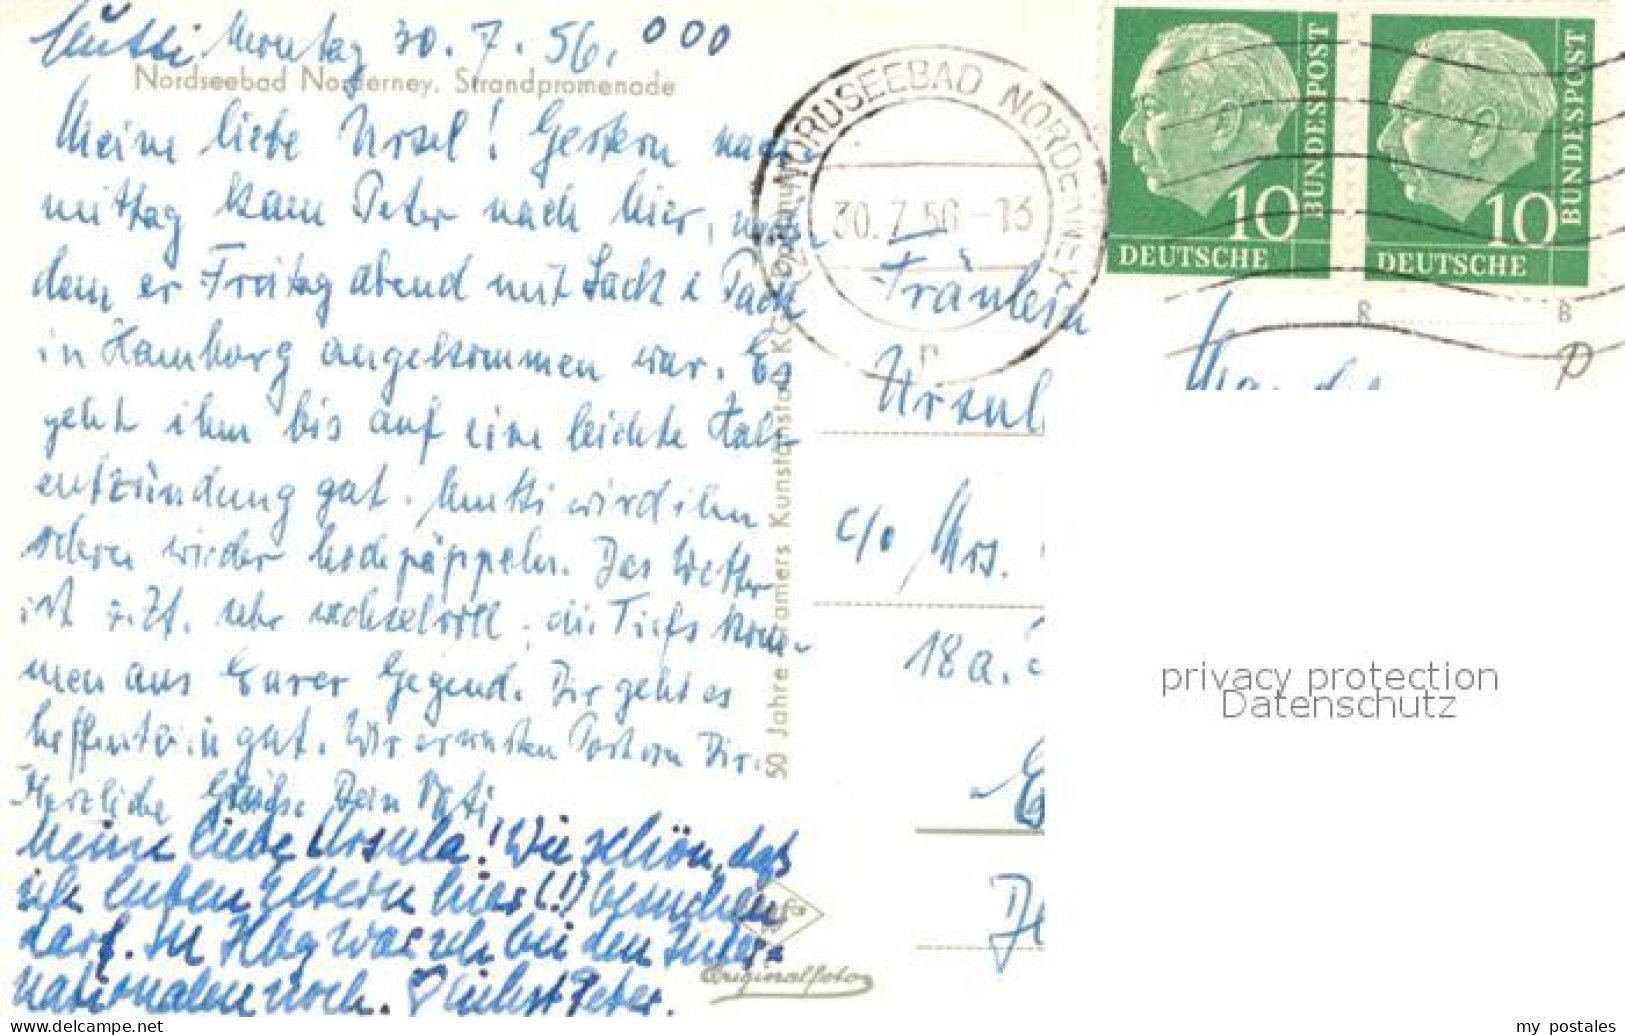 Mutti Montag 30. 7. 56. 000
Nordseebad Norderney. Strandpromenade
Meine liebe Ursel! Gestern nach-
mittag kam Peter nach hier, nach-
dem er Freitag abend mit Sack & Pack
in Hamburg angekommen war. Es
geht ihm bis auf eine leichte Hals-
entzündung gut. Mutti wird ihn
schon wieder hochpäppeln. Das Wetter
ist z. Zt. sehr wechselvoll, die Tiefs kom-
men aus Eurer Gegend. Dir geht es
hoffentlich gut. Wir erwarten Post von Dir.
Herzliche Grüße Dein Vati
Meine liebe Ursula! Wie schön, daß
ich lieben Eltern hier (!) besuchen
darf. In Hbg war ich bei den Inter=
nationalen noch. Peter.
50 Jahre Kramers Kunstanstalt KG
Originalfoto
NORDSEEBAD NORDERNEY
30.7.56-13
10
DEUTSCHE
BUNDESPOST
10
DEUTSCHE
BUNDESPOST
B B
P
Fräulein
Ursul
c/o Mrs.
18 a.
privacy protection
Datenschutz
delcampe.net
my_postales